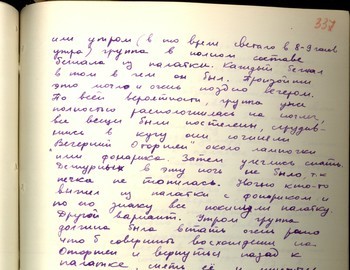 337
или утром (в то время светало в 8-9 часов
утра) группа в полном составе
бежала из палатки. Каждый бежал
в том в чем он был. Произойти
это могло и очень поздно вечером.
По всей вероятности, группа уже
полностью расположилась на ночь,
все вещи были постелены, сгрудив-
шись в кучу они сочиняли
Вечерний Отортен" около лампочки
или фонарика. Затем улеглись спать.
Дежурных в эту ночь не было, т.к
печка не топилась. Ночью кто-то
вышел из палатки с фонариком и
по его знаку все покинули палатку.
Другой вариант. Утром группа
должна была встать очень рано
чтоб совершить восхождение на
Отортен и вернуться назад к
палатке, снять её и